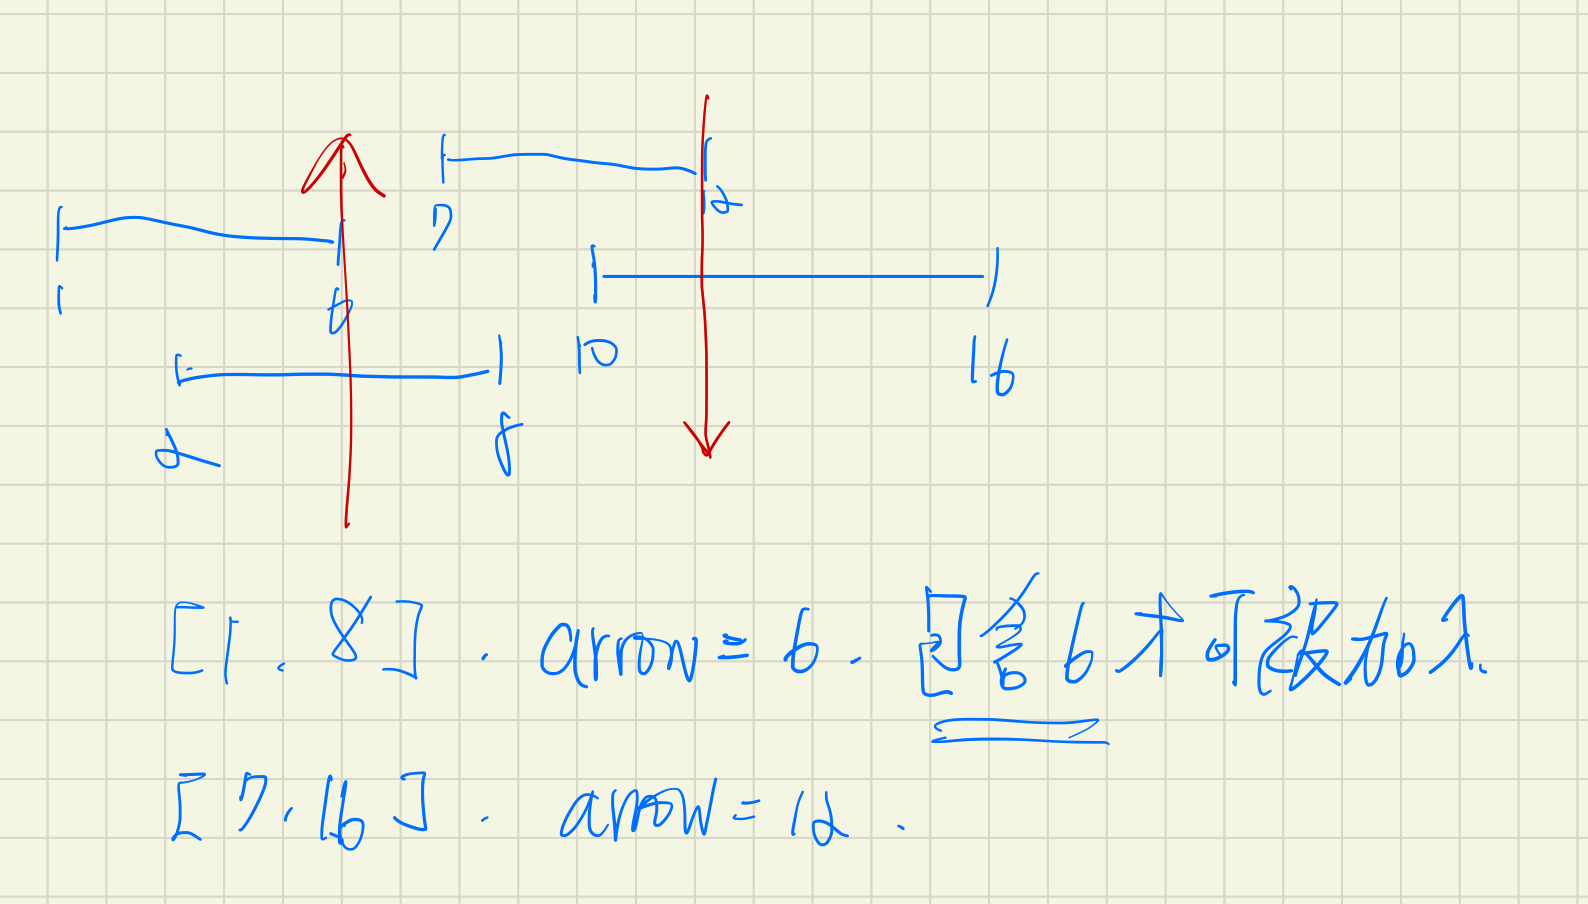 7 12
1 6
10 16
2 8
[1, 8]. arrow = 6. 包含6才可被加入.
[7, 16]. arrow = 12.